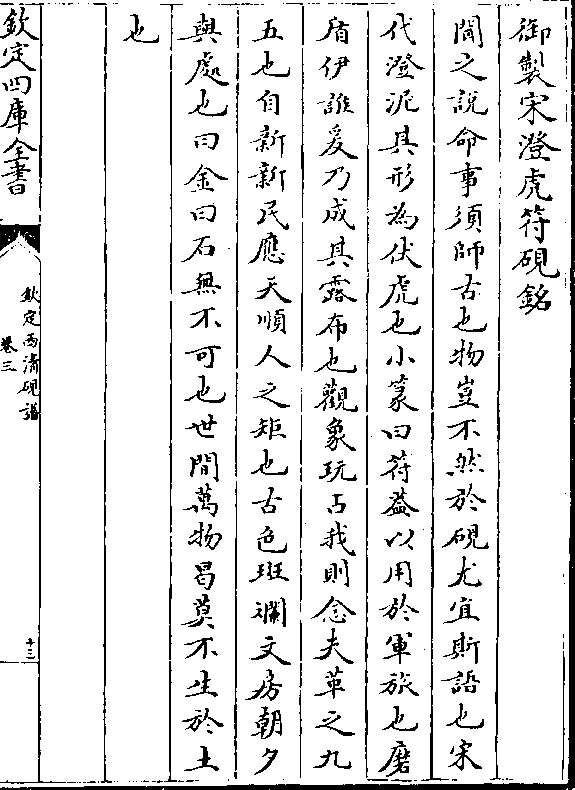 御製宋澄虎符硯銘
聞之説命事須師古也物豈不然於硯尤宜斯語也宋
代澄泥具形為伏虎也小篆曰符葢以用於軍旅也磨
盾伊誰爰乃成其露布也觀象玩占我則念夫革之九
五也自新新民應天順人之矩也古色斑斕文房朝夕
與處也曰金曰石無不可也世間萬物曷莫不生於土
也
欽定四庫全書
欽定西清硯譜
卷三
十三